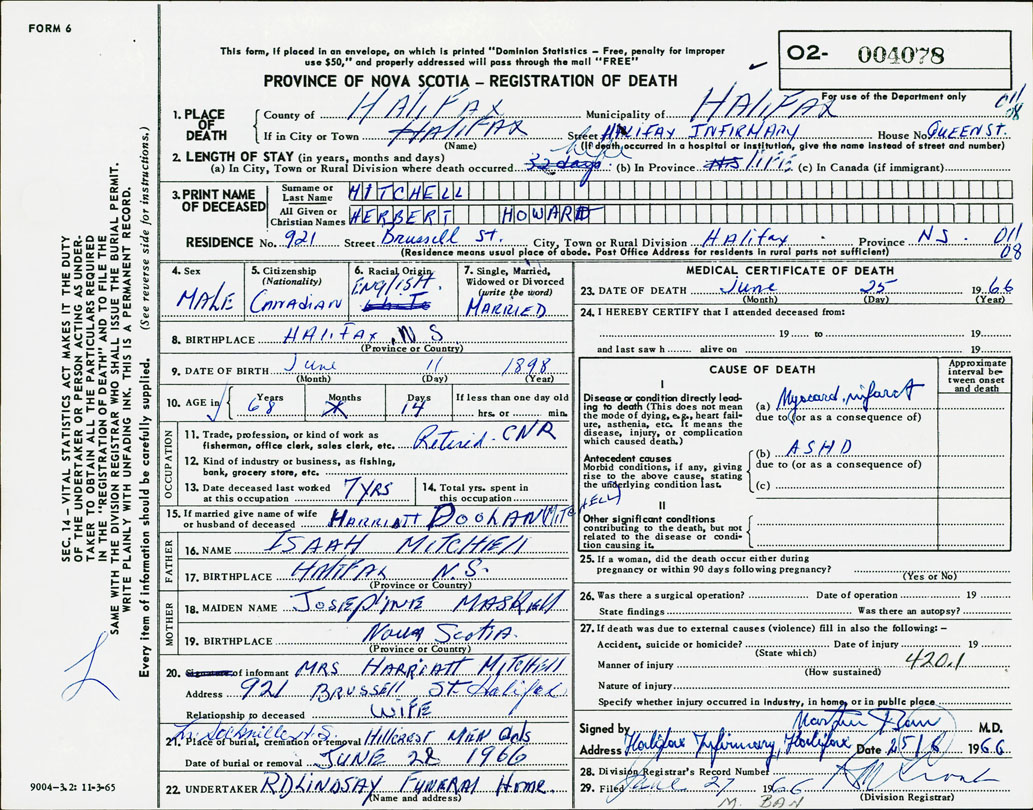 FORM 6
This form, if placed in an envelope, on which is printed "Dominion Statistics – Free, penalty for improper
use $50," and properly addressed will pass through the mail "FREE"
02- 004078
PROVINCE OF NOVA SCOTIA – REGISTRATION OF DEATH
For use of the Department only
011
08
1. PLACE OF DEATH
County of HALIFAX Municipality of HALIFAX
If in City or Town HALIFAX Street HALIFAX INFIRMARY House No. QUEEN ST.
(Name) (If death occurred in a hospital or institution, give the name instead of street and number)
2. LENGTH OF STAY (in years, months and days)
life
(a) In City, Town or Rural Division where death occurred 32 days (b) In Province LIFE (c) In Canada (if immigrant)
3. PRINT NAME OF DECEASED
Surname or Last Name MITCHELL
All Given or Christian Names HERBERT HOWARD
RESIDENCE No. 921 Street Brussell St. City, Town or Rural Division Halifax Province NS. 011
(Residence means usual place of abode. Post Office Address for residents in rural parts not sufficient) 08
4. Sex MALE
5. Citizenship (Nationality) Canadian
6. Racial Origin ENGLISH.
7. Single, Married, Widowed or Divorced (write the word) MARRIED
8. BIRTHPLACE HALIFAX, N S
(Province or Country)
9. DATE OF BIRTH June 11 1898
(Month) (Day) (Year)
10. AGE in Years 68 Months X Days 14 If less than one day old hrs. or min.
OCCUPATION
11. Trade, profession, or kind of work as
fisherman, office clerk, sales clerk, etc. Retired - CNR
12. Kind of industry or business, as fishing,
bank, grocery store, etc.
13. Date deceased last worked at this occupation 7 YRS
14. Total yrs. spent in this occupation
15. If married give name of wife
or husband of deceased HARRIATT DOOLAN MITCHELL
FATHER
16. NAME ISAAH MITCHELL
17. BIRTHPLACE HALIFAX N.S.
(Province or Country)
MOTHER
18. MAIDEN NAME JOSEPHINE MASKELL
19. BIRTHPLACE Nova Scotia.
(Province or Country)
20. Signature of informant MRS HARRIATT MITCHELL
Address 921 BRUSSELL ST. Halifax
Relationship to deceased WIFE
Sackville N.S.
21. Place of burial, cremation or removal Hillcrest Mem Gdns
Date of burial or removal JUNE 28 1966
22. UNDERTAKER RD LINDSAY FUNERAL HOME.
(Name and address)
MEDICAL CERTIFICATE OF DEATH
23. DATE OF DEATH June 25 1966
(Month) (Day) (Year)
24. I HEREBY CERTIFY that I attended deceased from:
19 to 19
and last saw h alive on 19
CAUSE OF DEATH
Approximate interval between onset and death
I
Disease or condition directly lead-
ing to death (This does not
mean the mode of dying, e.g., heart fail-
ure, asthenia, etc. It means the
disease, injury, or complication
which caused death.)
(a) Myocard. infarct
due to (or as a consequence of)
Antecedent causes
Morbid conditions, if any, giving
rise to the above cause, stating
the underlying condition last.
(b) ASHD
due to (or as a consequence of)
(c)
II
Other significant conditions
contributing to the death, but not
related to the disease or condi-
tion causing it.
25. If a woman, did the death occur either during
pregnancy or within 90 days following pregnancy?
(Yes or No)
26. Was there a surgical operation? Date of operation 19
State findings Was there an autopsy?
27. If death was due to external causes (violence) fill in also the following: –
Accident, suicide or homicide? Date of injury 19
(State which)
Manner of injury 420.1
(How sustained)
Nature of injury
Specify whether injury occurred in industry, in home, or in public place
Signed by Martin Ban M.D.
Address Halifax Infirmary, Halifax Date 25/6 1966
28. Division Registrar's Record Number
29. Filed June 27 1966
(Division Registrar)
M. BAN
SEC. 14 – VITAL STATISTICS ACT MAKES IT THE DUTY
OF THE UNDERTAKER OR PERSON ACTING AS UNDER-
TAKER TO OBTAIN ALL THE PARTICULARS REQUIRED
IN THE "REGISTRATION OF DEATH" AND TO FILE THE
SAME WITH THE DIVISION REGISTRAR WHO SHALL ISSUE THE BURIAL PERMIT.
WRITE PLAINLY WITH UNFADING INK. THIS IS A PERMANENT RECORD.
Every item of information should be carefully supplied. (See reverse side for instructions.)
9004–3.2: 11-3-65